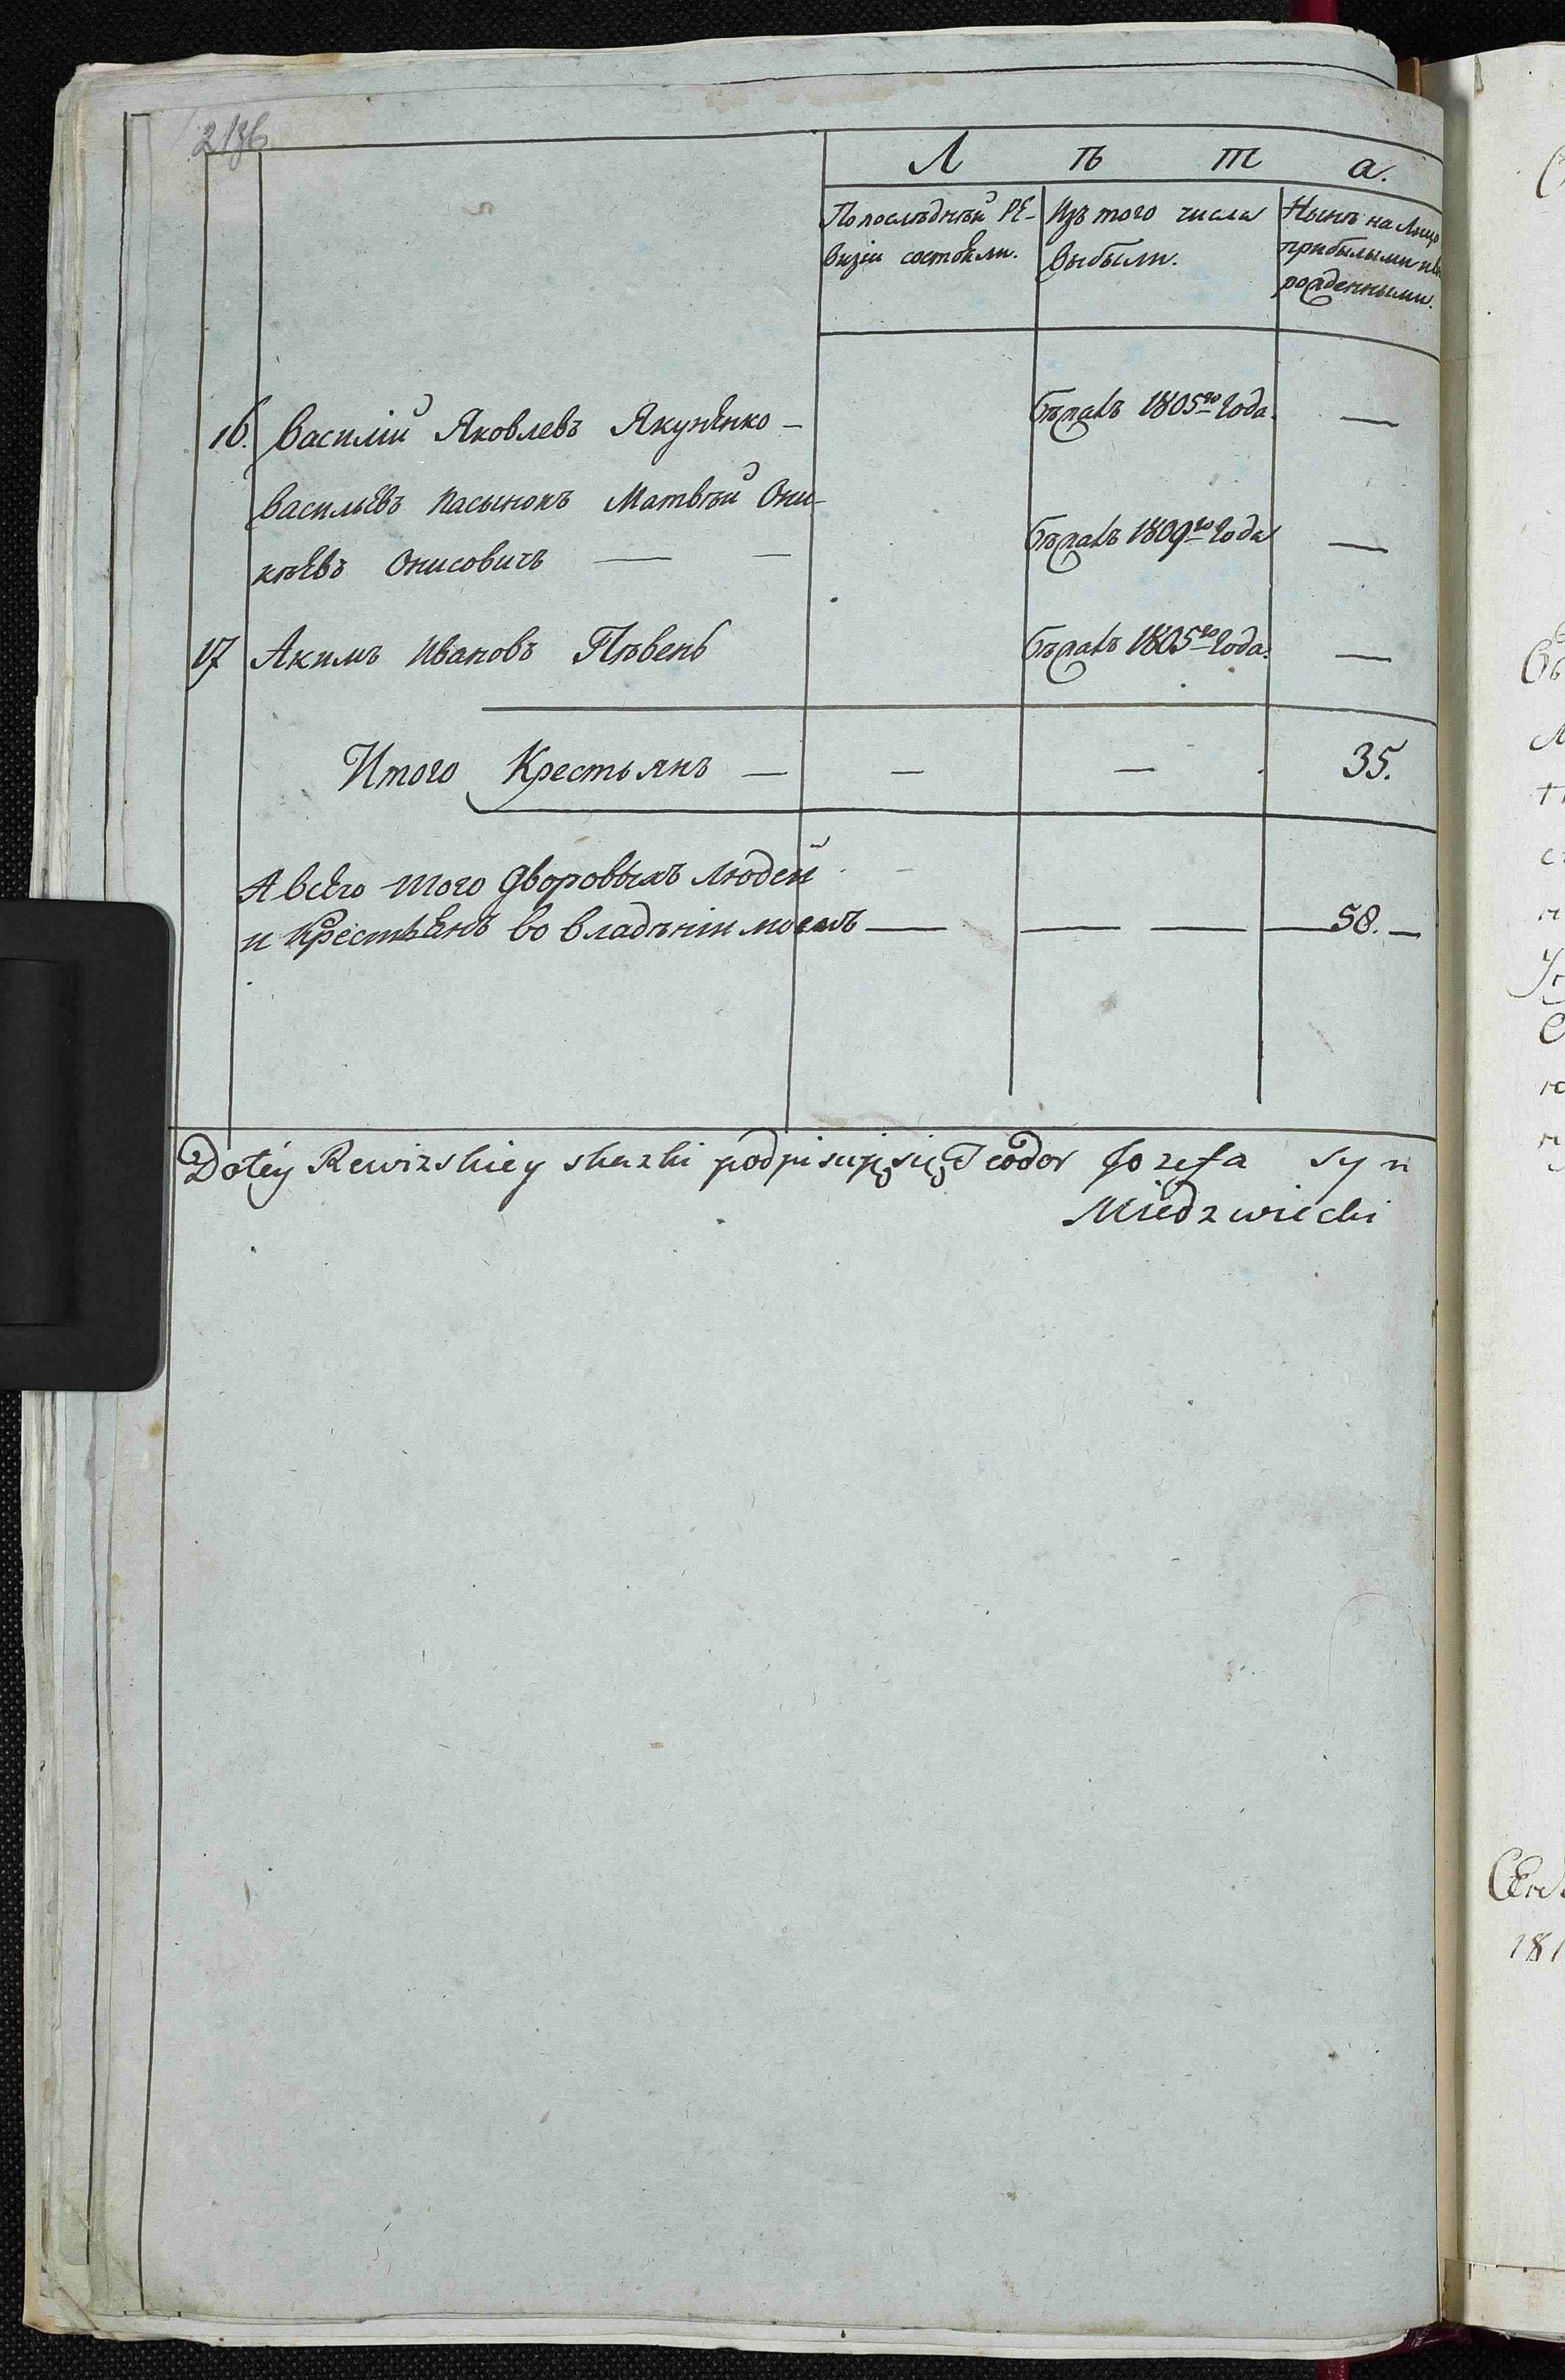 Л ѣ т а.
По послѣдней РЕ- Изъ того числа Нынѣ на лицо
визіи состояли. выбыли. прибылыми и
рожденными.
16. Василій Яковлевъ Якуненко — бѣжалъ 1805го года. —
Васильевъ пасынокъ Матвѣй Они-
кѣевъ Онисовичъ — — бѣжалъ 1809го года —
17 Акимъ Ивановъ Пѣвень бѣжалъ 1805го года. —
Итого Крестьянъ — — — 35.
А всего того дворовыхъ людей
и Крестьянъ во владѣніи моемъ — — — — 58. —
Do tey Rewizskiey skazki podpisuję się Teodor Jozefa syn
Miedzwiecki